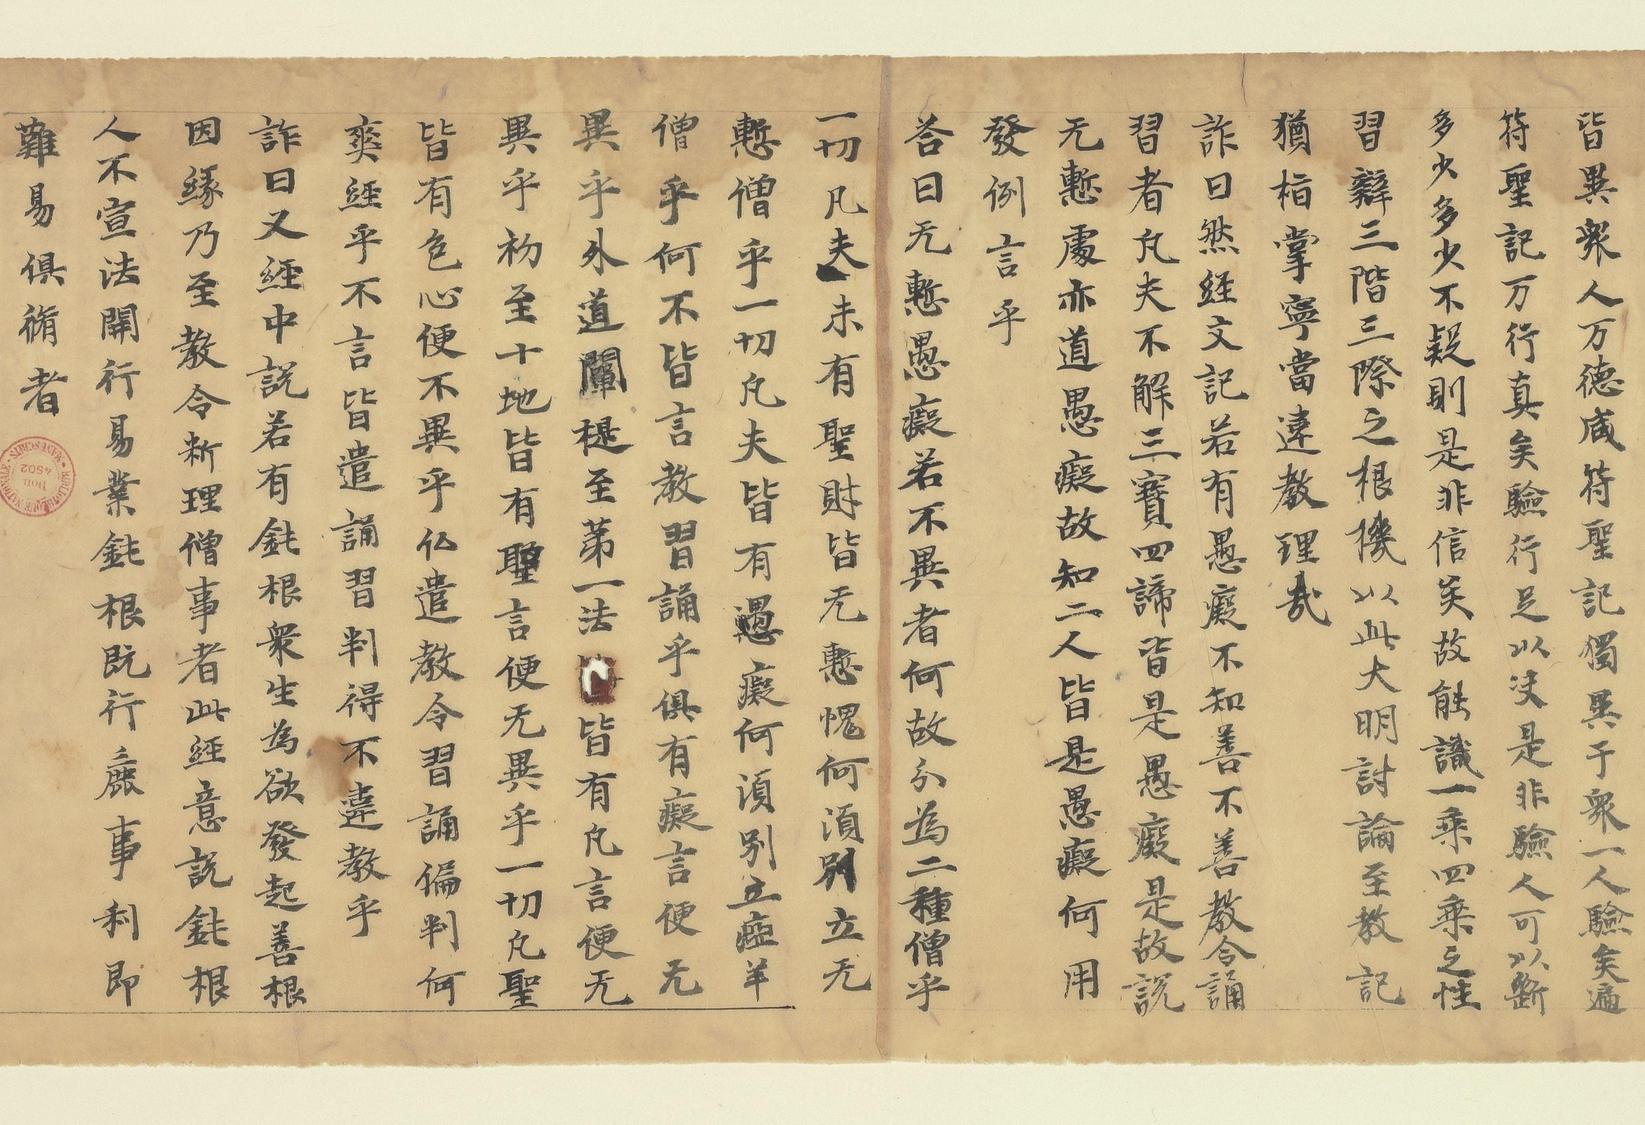 皆異衆人万德咸符聖記獨異于衆一人驗矣遍
符聖記万行真矣驗行足以决是非驗人可以斷
多少多少不疑則是非信矣故能識一乘四乘之性
習辯三階三際之根機以此大明討論至教記
猶指掌寧當違教理哉
詐曰然經文記若有愚癡不知善不善教令誦
習者凡夫不解三寶四諦皆是愚癡是故說
无慙處亦道愚癡故知二人皆是愚癡何用
發例言乎
荅曰无慙愚癡若不異者何故分為二種僧乎
一切凡夫未有聖財皆无慙愧何湏別立无
慙僧乎一切凡夫皆有愚癡何湏別立瘂羊
僧乎何不皆言教習誦乎俱有癡言便无
異乎外道闡提至第一法皆有凡言便无
異乎初至十地皆有聖言便无異乎一切凡聖
皆有色心便不異乎仏遣教令習誦偏判何
爽經乎不言皆遣誦習判得不違教乎
詐曰又經中説若有鈍根衆生為欲發起善根
因緣乃至教令断理僧事者此經意説鈍根
人不宣法開行易業鈍根既行麁事利即
難易俱脩者
BIBLIOTHEQUE NATIONALE
MANUSCRITS
Don
4502